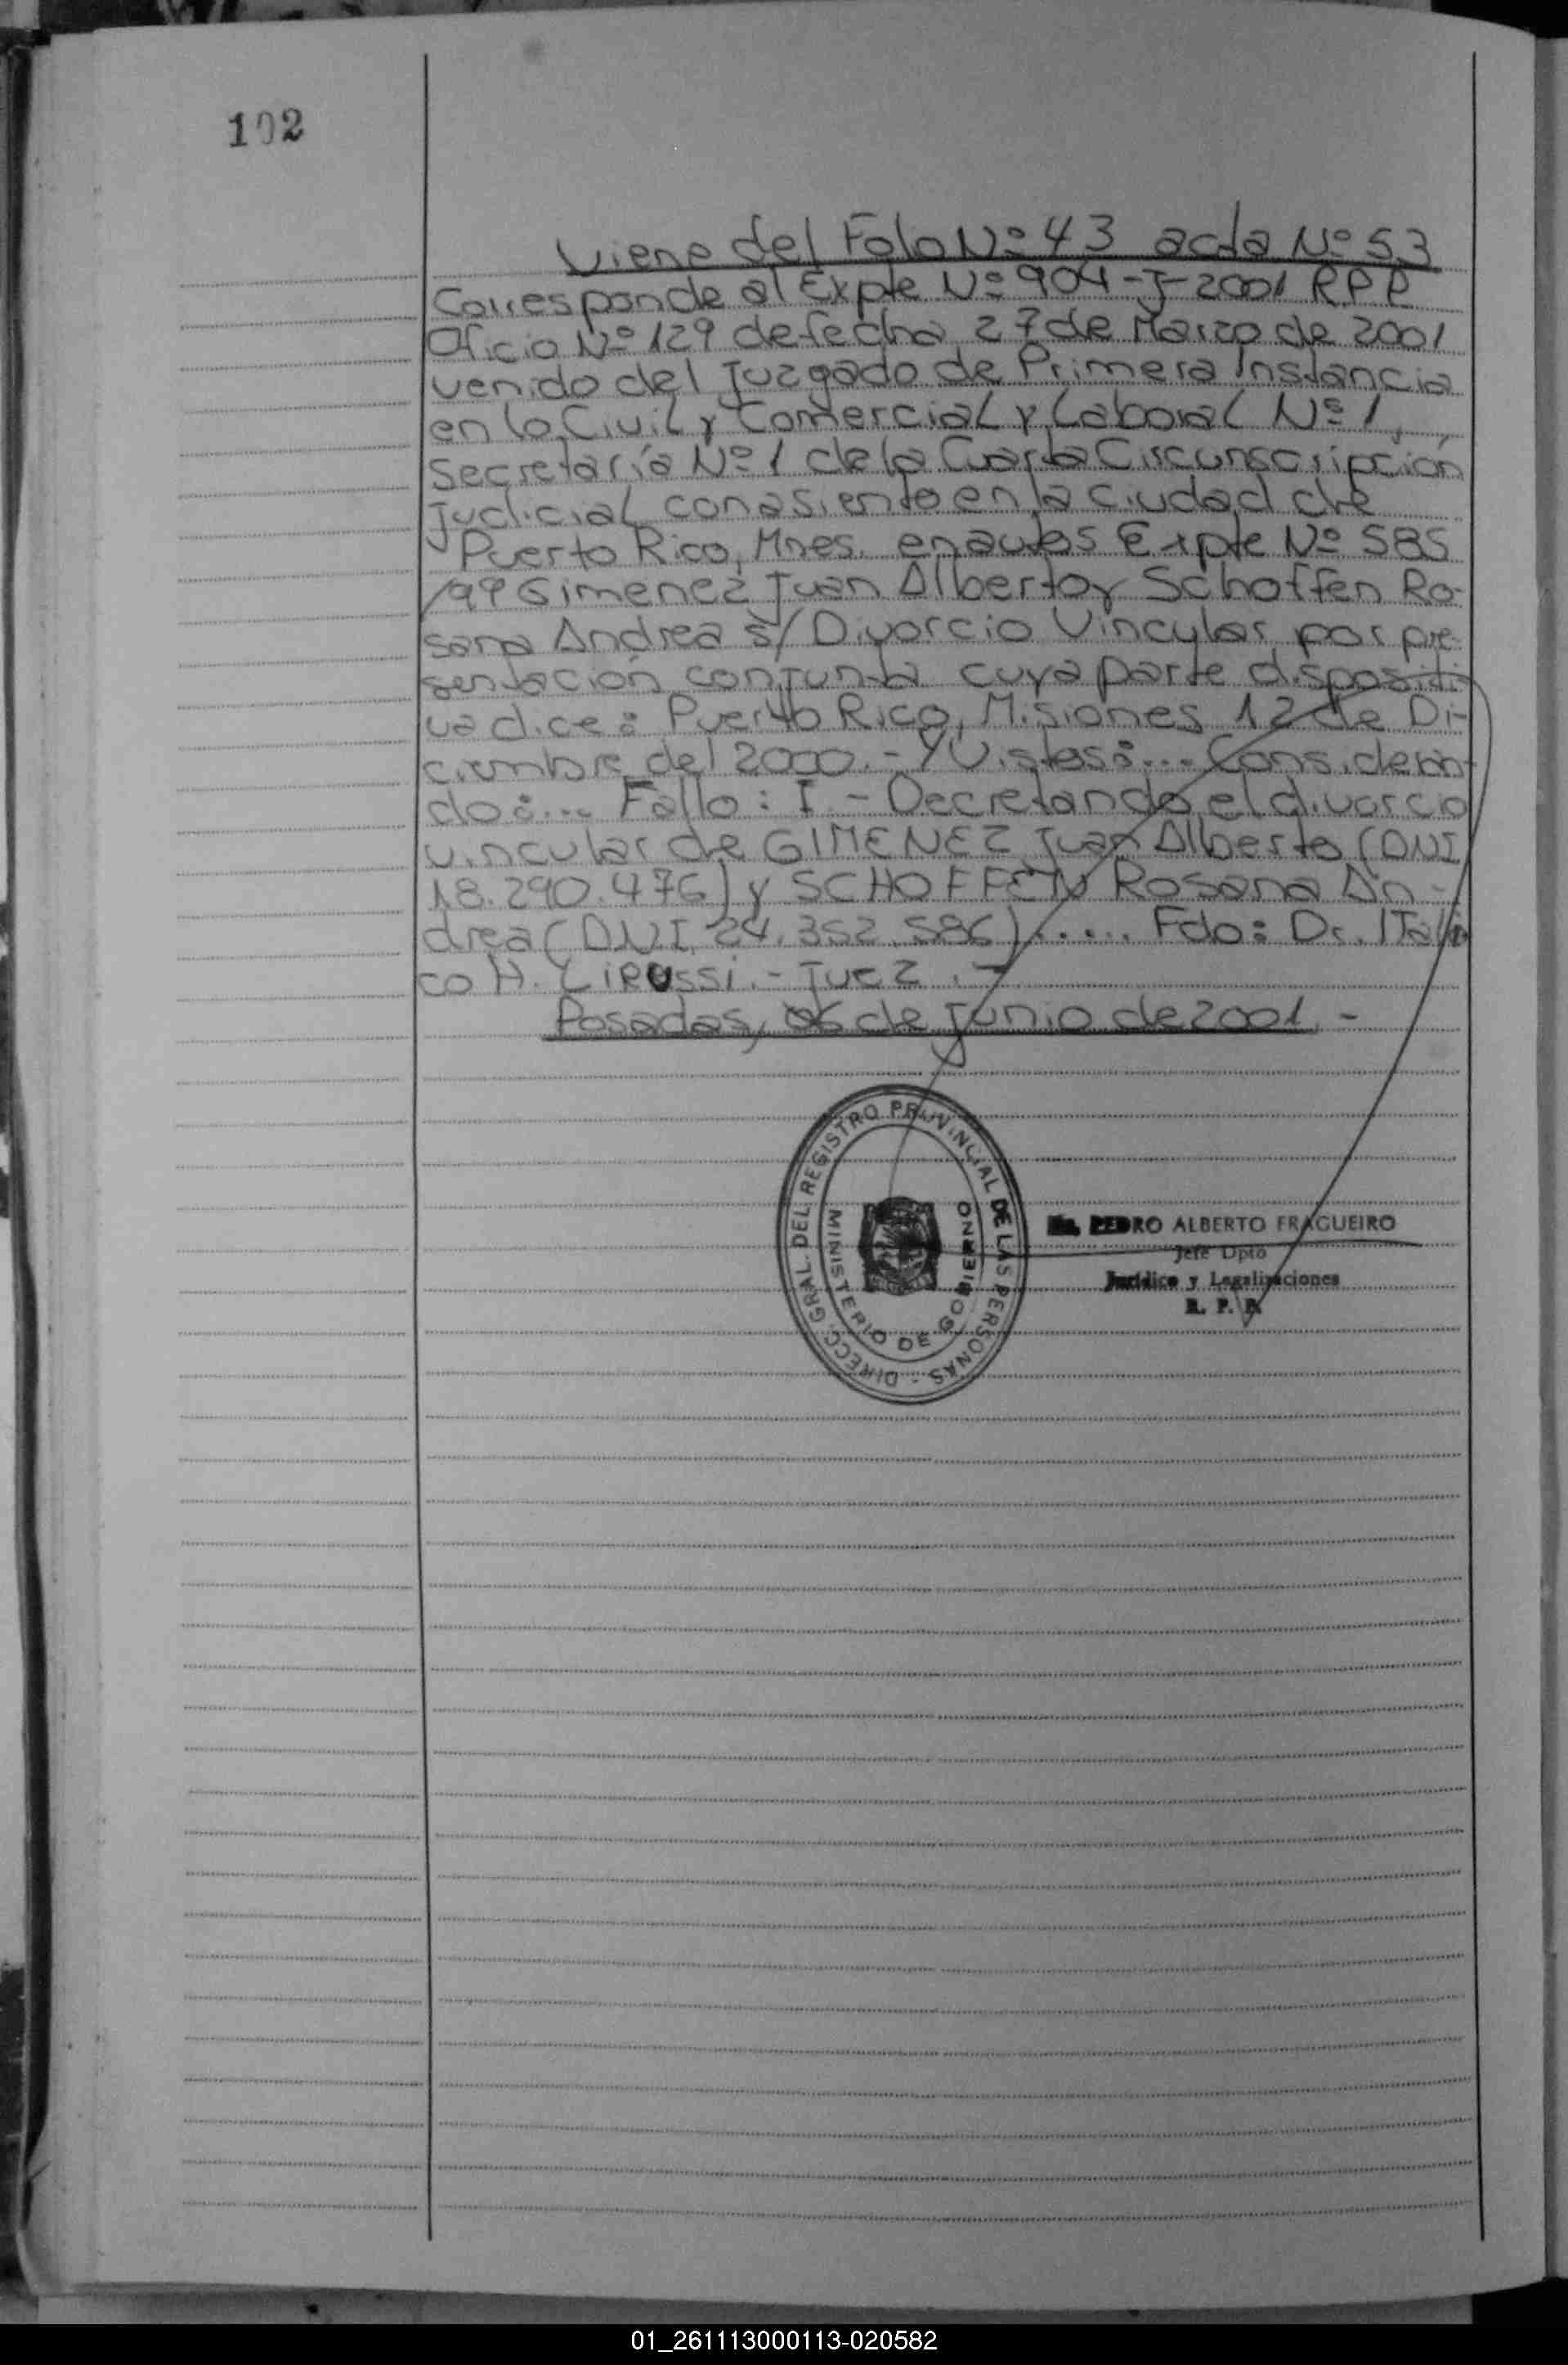 102
Viene del Folo Nº 43 acta Nº 53
Corresponde al Expte Nº 904-J-2001 RPP
Oficio Nº 129 de fecha 27 de Marzo de 2001
venido del Juzgado de Primera Instancia
en lo Civil y Comercial y Laboral Nº 1,
Secretaría Nº 1 de la Cuarta Circunscripción
Judicial con asiento en la ciudad de
Puerto Rico, Mnes. en autos Expte Nº 585
/99 Gimenez Juan Alberto y Schoffen Ro-
sana Andrea s/ Divorcio Vincular por pre-
sentación conjunta cuya parte dispositi-
va dice: Puerto Rico, Misiones 12 de Di-
ciembre del 2000.- Y Vistos:... Consideran-
do:... Fallo: I - Decretando el divorcio
vincular de GIMENEZ Juan Alberto (DNI
18.290.476) y SCHOFFEN Rosana An-
drea (DNI 24.352.586)..... Fdo: Dr. ITáli
co H. Cirussi.- Juez.-
Posadas, 06 de Junio de 2001.-
DIRECC. GRAL. DEL REGISTRO PROVINCIAL DE LAS PERSONAS -
MINISTERIO DE GOBIERNO
PEDRO ALBERTO FRAGUEIRO
Jefe Dpto
Jurídico y Legalizaciones
R. P. P.
01_261113000113-020582